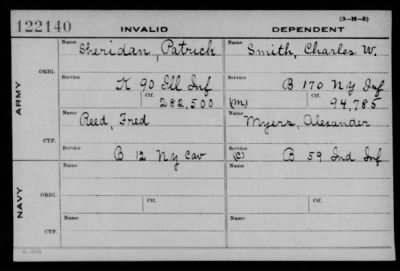 122140
INVALID
DEPENDENT
(3-M-5)
ARMY
ORIG.
Name
Sheridan, Patrick
Name
Smith, Charles W.
Service
K 90 Ill Inf
Service
B 170 N.Y. Inf
Ctf.
282,500
(M)
Ctf.
94,785
CTF.
Name
Reed, Fred
Name
Myers, Alexander
Service
B 12 N.Y. Cav
Service
(C)
B 59 Ind Inf
NAVY
ORIG.
Name
Name
Service
Ctf.
Service
Ctf.
CTF.
Name
Name